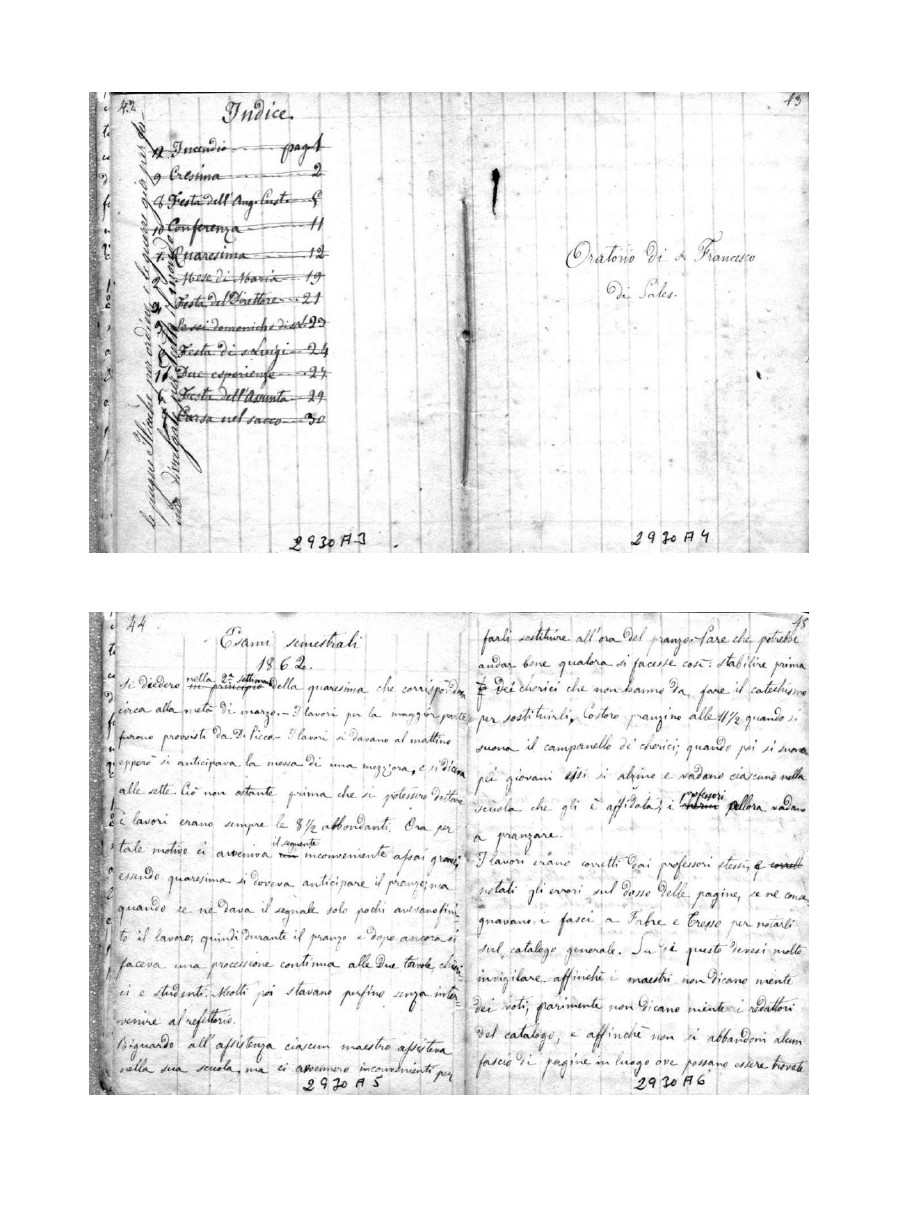 42
Indice.
12 Incendio pag. 1
9 Cresima 2
8 Festa dell'Ang. Cust. 5
10 Conferenza 11
1. Quaresima 12
2. Mese di Maria 19
Festa del Direttore 21
Le sei domeniche di s. L. 23
Festa di s. Luigi 24
11 Due esperienze 27
Festa dell'Assunta 29
Corsa nel sacco 30
2930 A 3
43
Oratorio di s. Francesco
di Sales.
2930 A 4
44
Esami semestrali
1862.
Si diedero in principio nella 2ª settimana della quaresima che corrisponde
circa alla metà di marzo. - I lavori per la maggior parte
furono provvisti da D. Picco. - I lavori si davano al mattino
epperò si anticipava la messa di una mezz'ora, e si diceva
alle sette. Ciò non ostante prima che si potessero dettare
i lavori erano sempre le 8½ abbondanti. Ora per
tale motivo ci avveniva un il seguente inconveniente assai grave;
essendo quaresima si doveva anticipare il pranzo; ma
quando se ne dava il segnale solo pochi avevano fini-
to il lavoro; quindi durante il pranzo e dopo ancora si
faceva una processione continua alle due tavole, chieri-
ci e studenti. Molti poi stavano perfino senza inter-
venire al refettorio.
Riguardo all'assistenza ciascun maestro assisteva
nella sua scuola, ma ci avvennero inconvenienti per
2930 A 5
45
farli sostituire all'ora del pranzo. Pare che potrebbe
andar bene qualora si facesse così: stabilire prima
dei cherici che non hanno da fare il catechismo
per sostituirli. Costoro pranzino alle 11½ quando si
suona il campanello de' cherici; quando poi si suona
pei giovani essi si alzino e vadano ciascuno nella
scuola che gli è affidata; i cherici professori allora vadano
a pranzare.
I lavori erano corretti dai professori stessi, e corretti
notati gli errori sul dosso delle pagine, se ne conse-
gnavano i fasci a Fabre e Cresso per notarli
sul catalogo generale. Su di questo devesi molto
invigilare affinchè i maestri non dicano niente
dei voti; parimente non dicano niente i redattori
del catalogo, e affinchè non si abbandoni alcun
fascio di pagine in luogo ove possano essere trovate
2930 A 6